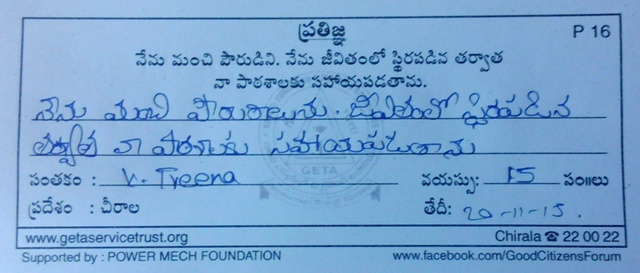 ప్రతిజ్ఞ P 16
నేను మంచి పౌరుడిని. నేను జీవితంలో స్థిరపడిన తర్వాత
నా పాఠశాలకు సహాయపడతాను.
నేను మంచి పౌరురాలను. జీవితంలో స్థిరపడిన
తర్వాత నా పాఠశాలకు సహాయపడుతాను
సంతకం : V. Treena వయస్సు: 15 సం॥లు
GETA
ప్రదేశం : చీరాల తేదీ: 20-11-15.
www.getaservicetrust.org Chirala ☎ 22 00 22
Supported by : POWER MECH FOUNDATION www.facebook.com/GoodCitizensForum